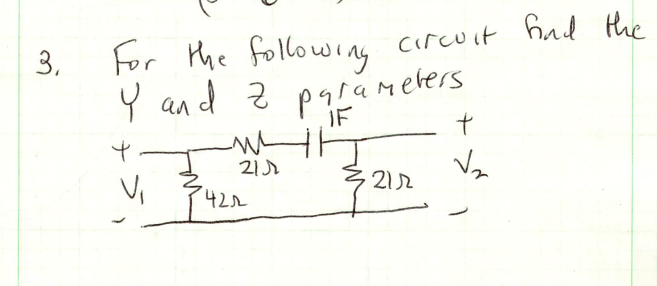 3. For the following circuit find the
Y and Z parameters
1F
+ +
21Ω
V₁ 42Ω 21Ω V₂
- -